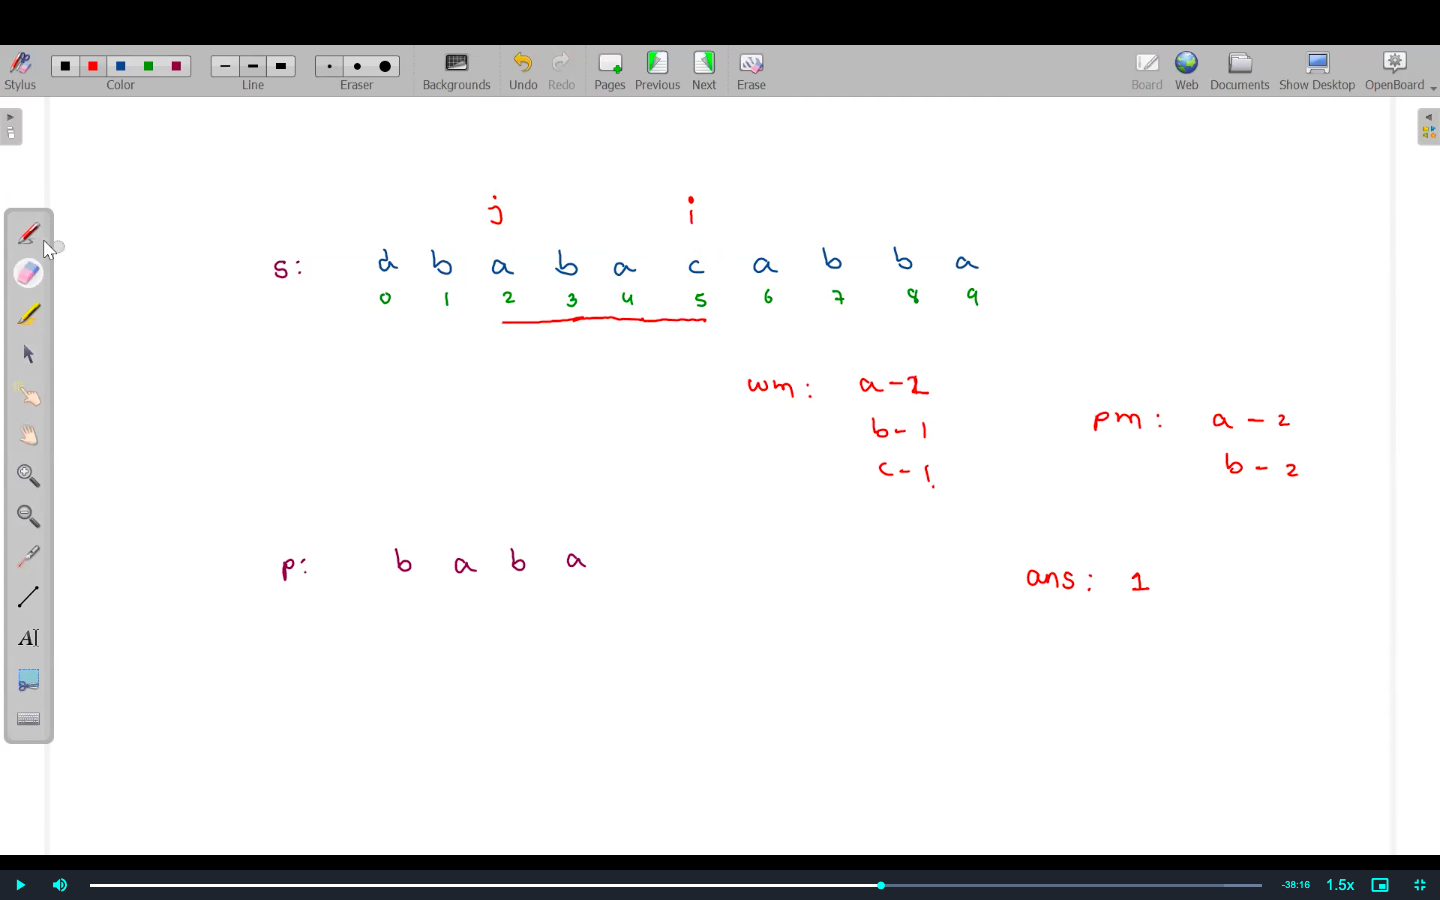 Stylus Color Line Eraser Backgrounds Undo Redo Pages Previous Next Erase Board Web Documents Show Desktop OpenBoard
j i
s: d b a b a c a b b a
0 1 2 3 4 5 6 7 8 9
wm: a-2
b-1
c-1
pm: a-2
b-2
p: b a b a
ans: 1
AI
-38:16 1.5x